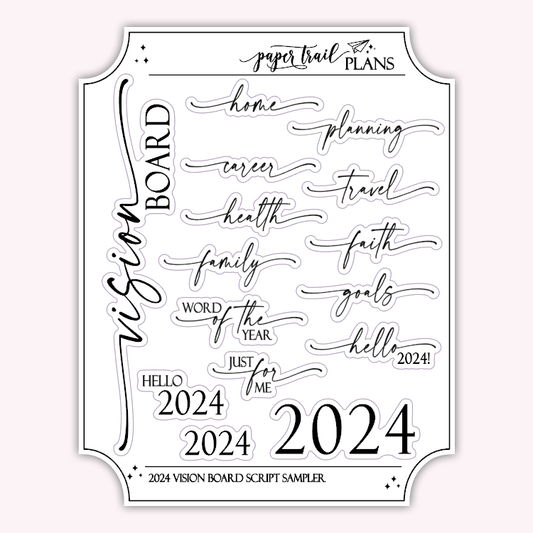 paper trail
PLANS
vision
BOARD
home
planning
career
travel
health
faith
family
goals
WORD
of the
YEAR
hello
2024!
JUST
for
ME
HELLO
2024
2024
2024
2024 VISION BOARD SCRIPT SAMPLER